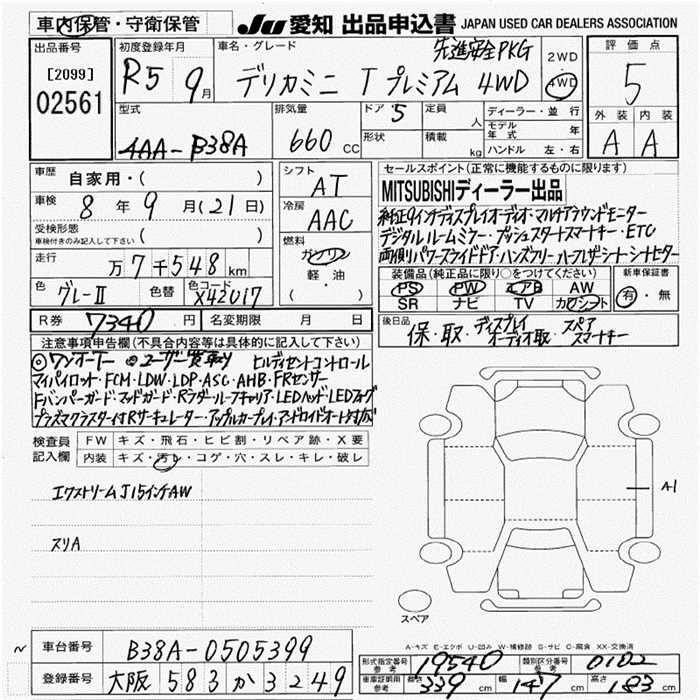 車内保管・守衛保管
JU 愛知 出品申込書 JAPAN USED CAR DEALERS ASSOCIATION
出品番号
[2099]
02561
初度登録年月
R5 9月
車名・グレード
先進安全PKG
デリカミニ T プレミアム 4WD
2WD
4WD
評価点
5
外装 内装
A A
型式
4AA-B38A
排気量
660 CC
ドア 5
形状
定員 人
積載 kg
ディーラー・並行
モデル年式 年
ハンドル 左・右
車歴 自家用・( )
車検 8年9月(21日)
受検形態
車検付きのみ記入して下さい ( )
走行 万7千548km
色 グレーII 色替 色コード X42U17
シフト AT
冷房 AAC
燃料 ガソリン
軽油
( )
セールスポイント(正常に機能するものに限ります)
MITSUBISHIディーラー出品
純正9インチディスプレイオーディオ・マルチアラウンドモニター
デジタルルームミラー・プッシュスタートスマートキー・ETC
両側パワースライドドア・ハンズフリー・ハーフレザーシート・シートヒーター
装備品(純正品に限り○をつけてください)
PS PW エアB AW
SR ナビ TV カワシート
新車保証書
有・無
R券 7340円 名変期限 月 日
後日品
保・取・ディスプレイオーディオ取・スペアスマートキー
注意事項申告欄(不具合内容等は具体的に記入して下さい)
◎ワンオーナー ◎ユーザー買取り ヒルディセントコントロール
マイパイロット・FCM・LDW・LDP・ASC・AHB・FRセンサー
Fバンパーガード・マッドガード・Rラダー・ルーフキャリア・LEDヘッド・LEDフォグ
プラズマクラスター付Rサーキュレーター・アップルカープレイ・アンドロイドオート対応
検査員記入欄
FW キズ・飛石・ヒビ割・リペア跡・X要
内装 キズ・汚レ・コゲ・穴・スレ・キレ・破レ
エクストリームJ 15インチAW
スリA
A-1
スペア
A-キズ E-エクボ U-凹み W-補修跡 S-サビ C-腐食 XX-交換済
車台番号 B38A-0505399
登録番号 大阪 583 か 3249
形式指定番号 参考 19540 類別区分番号 参考 0102
車庫証明用 参考 長さ 339 cm 幅 147 cm 高さ 183 cm